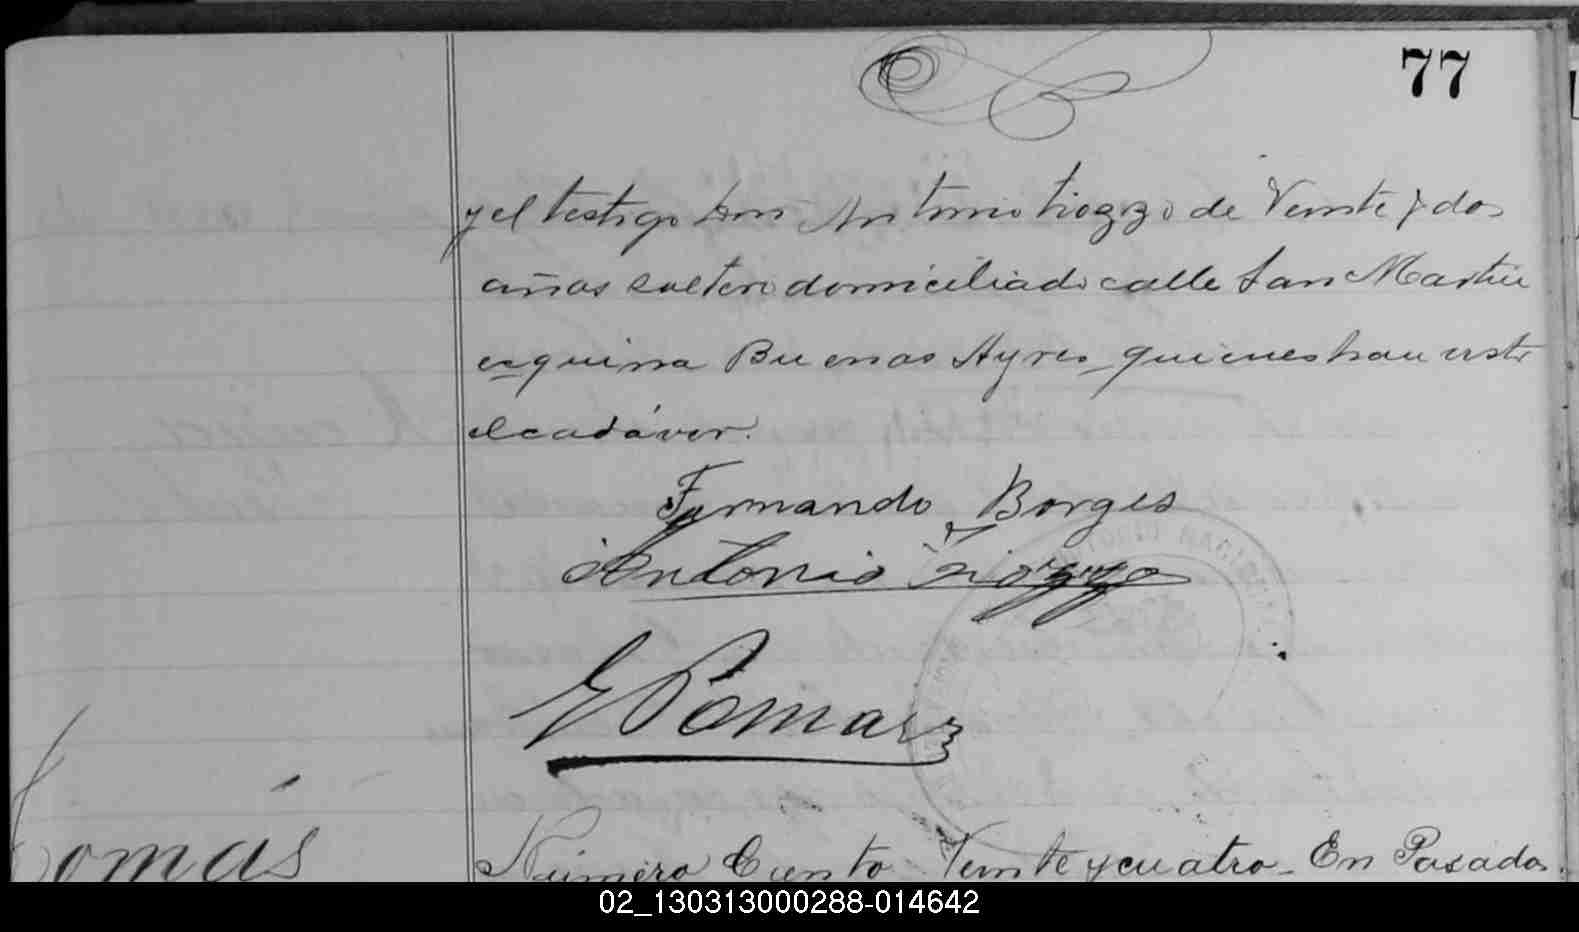 77
y el testigo don Antonio Tiozzo de Veinte y dos
años soltero domiciliado calle San Martin
esquina Buenos Ayres quienes han visto
el cadáver.
Fernando Borges
Antonio Tiozzo
E Pomar
Tomás
Número Ciento Veinte y cuatro_ En Posadas.
02_130313000288-014642